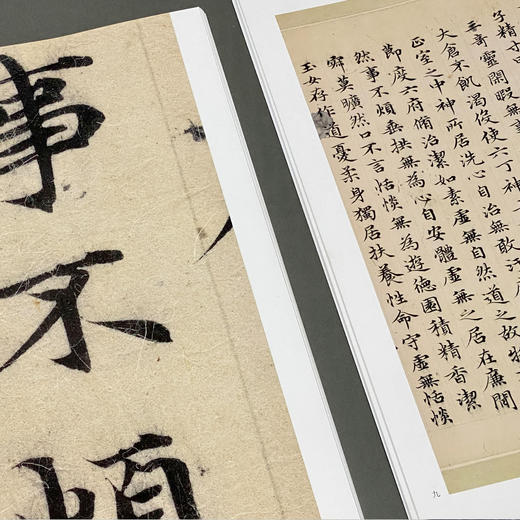 事不煩
子精寸
奇靈閑暇無事
大倉不飢渴役使六丁神
正室之中神所居洗心自治無敢汙
節度六府脩治潔如素虛無自然道之故物
然事不煩垂拱無為心自安體虛無之居在廉閒
寂莫曠然口不言恬惔無為遊德園積精香潔
玉女存作道憂柔身獨居扶養性命守虛無恬惔
九